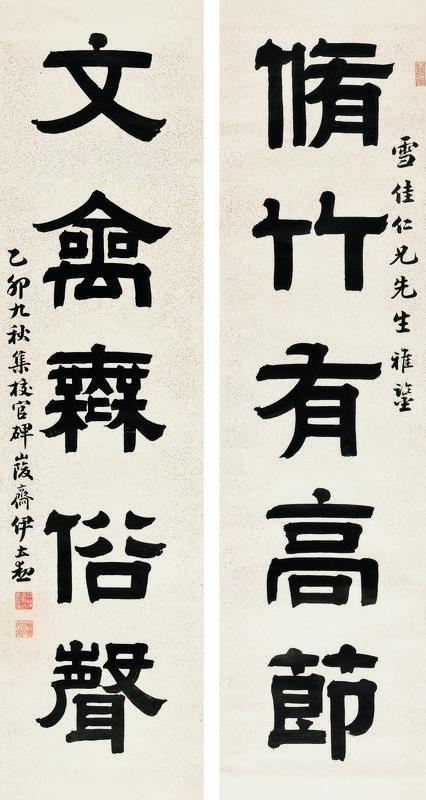 雪佳仁兄先生雅鑒
脩竹有高節
文禽無俗聲
乙卯九秋集校官碑峻齋伊立勳